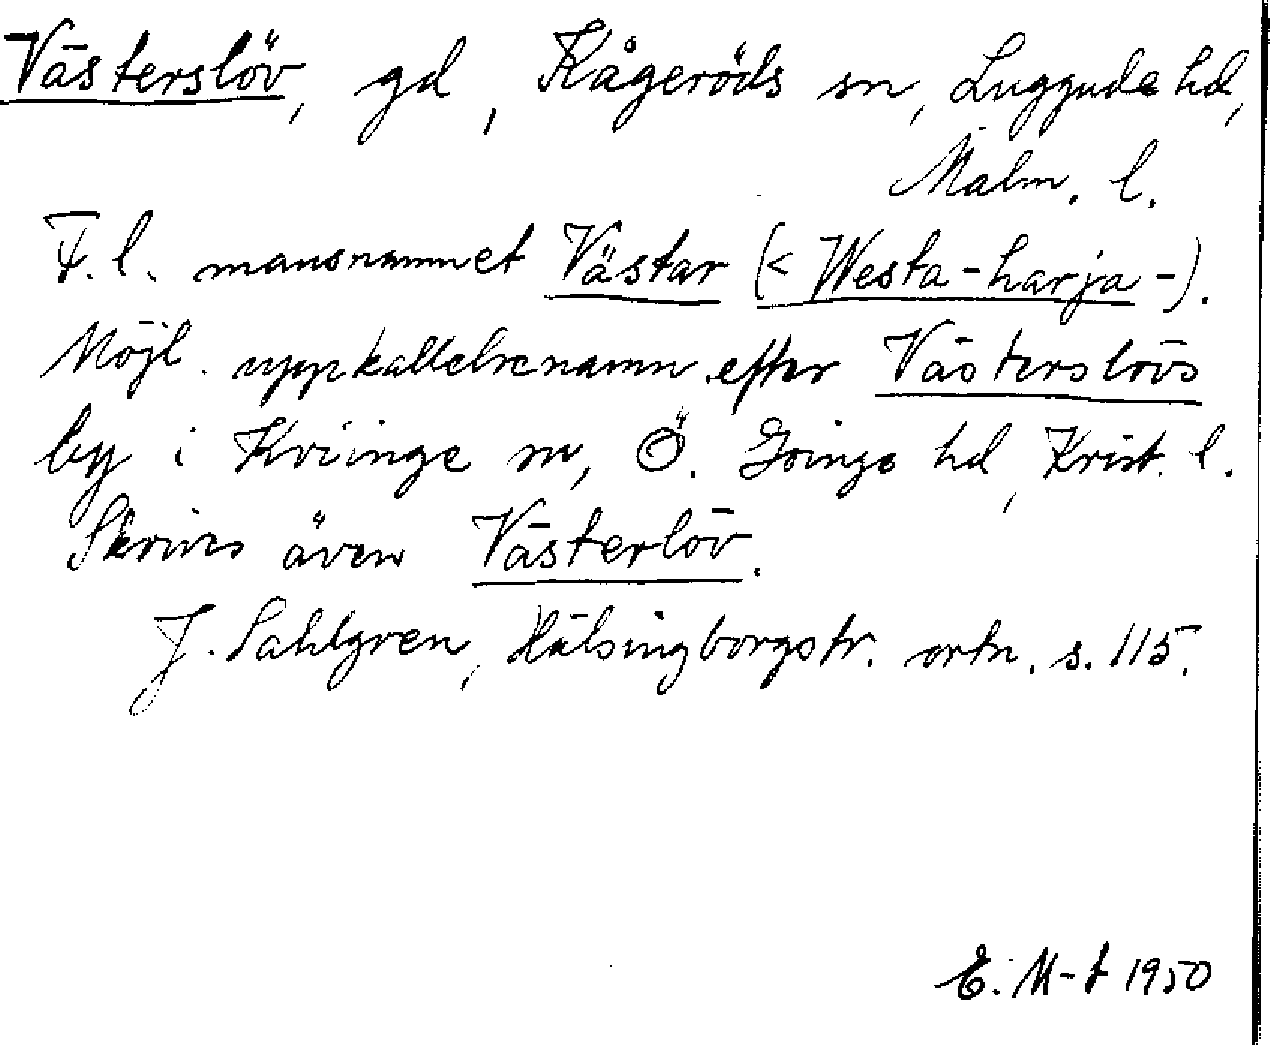 Västerslöv, gd, Kågeröds sn, Luggude hd,
Malm. l.
F.l. mansnamnet Västar (< Westa-harja-).
Möjl. uppkallelsenamn efter Västerslövs
by i Kviinge sn, Ö. Göinge hd, Krist. l.
Skrives även Västerlöv.
J. Sahlgren, Hälsingborgstr. ortn. s. 115.
E. M-t 1950